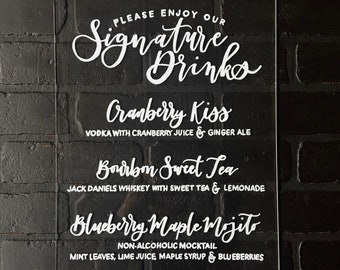 PLEASE ENJOY OUR
Signature
Drinks
Cranberry Kiss
VODKA WITH CRANBERRY JUICE & GINGER ALE
Bourbon Sweet Tea
JACK DANIELS WHISKEY WITH SWEET TEA & LEMONADE
Blueberry Maple Mojito
NON-ALCOHOLIC MOCKTAIL
MINT LEAVES, LIME JUICE, MAPLE SYRUP & BLUEBERRIES